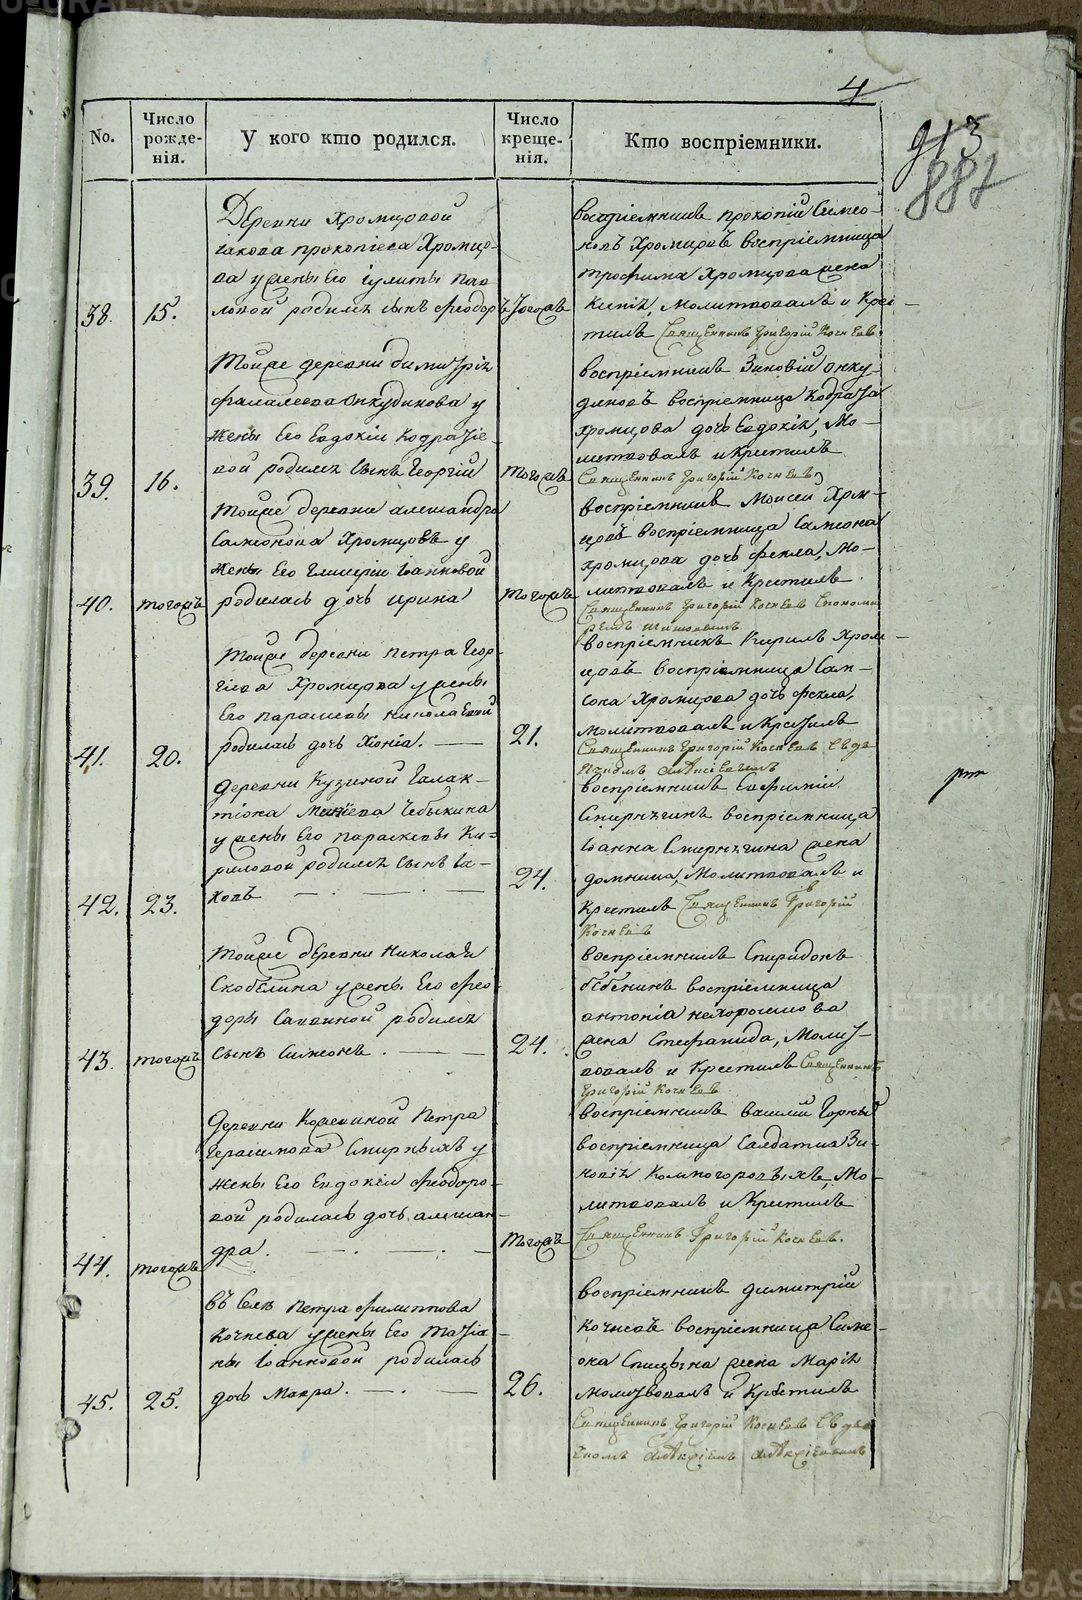 4
913
887
No.
Число рожде-нія.
У кого кто родился.
Число креще-нія.
Кто воспріемники.
38.
15.
Деревни Хромцовой
іакова прокопіева Хромцо-
ва у жены Его іулиты Пав
ловой родился сынъ Феодоръ
Тогожъ
воспріемникъ прокопій Симео-
новъ Хромцовъ воспріемница
трофима Хромцова жена
Ксенія, молитвовалъ и Крес-
тилъ Священникъ Григорій Кочневъ.
39.
16.
Тойже деревни димитрія
фалалеева Онкудинова у
жены Его Евдокіи Кодратіе-
вой родился Сынъ Георгій
Тогожъ
воспріемникъ Зиновій онку-
диновъ воспріемница Кодратія
хромцова дочь Евдокія, Мо-
литвовалъ и Крестилъ
Священникъ Григорій Кочневъ,
40.
тогожъ
Тойже деревни александра
Самсонова Хромцовъ у
жены Его Гликеріи Іоанновой
родилась дочь ирина
Тогожъ
воспріемникъ Моисей Хром-
цовъ воспріемница Самсона
хромцова дочь фекла, Мо-
литвовалъ и Крестилъ.
Священникъ Григорій Кочневъ
41.
20.
Тойже деревни петра Геор-
гіева Хромцова у жены
Его параскевы николаевой
родилась дочь Хіонія.
21.
воспріемникъ Кирилъ Хром-
цовъ воспріемница Сам-
сона Хромцова дочь фекла,
молитвовалъ и Крестилъ
Священникъ Григорій Кочневъ Съ дь
42.
23.
деревни Кузиной Галак-
тіона Минѣева Чебыкина
у жены Его параскевы Ки-
риловой родился Сынъ Іа-
ковъ
24.
воспріемникъ Евфимій
Смирнягинъ воспріемница
Іоанна Смирнягина жена
домника, Молитвовалъ и
Крестилъ Священникъ Григорій
Кочневъ
43.
тогожъ
Тойже деревни Николая
Скобелина у жены Его Фео-
доры Саввиной родился
Сынъ Симеонъ.
24.
воспріемникъ Спиридонъ
бѣбенинъ воспріемница
антонія нехорошкова
жена Стефанида, Молит-
вовалъ и Крестилъ Священникъ
Григорій Кочневъ
44.
тогожъ
Деревни Кожевиной Петра
Герасимова Смирныхъ у
жены Его Евдокіи Феодоро-
вой родилась дочь алексан-
дра.
Тогожъ
воспріемникъ василій Горный
воспріемница Салдатка Зи-
новія Комногоровыхъ, Мо-
литвовалъ и Крестилъ
Священникъ Григорій Кочневъ.
45.
25.
въ Селѣ Петра Филиппова
Кочнева у жены Его Татіа-
ны Іоанновой родилась
дочь Мавра.
26.
воспріемникъ димитрій
Кочневъ воспріемница Симе-
она Спицына жена Марія
молитвовалъ и Крестилъ
Священникъ Григорій Кочневъ Съ дья
METRIKI.GASO-URAL.RU